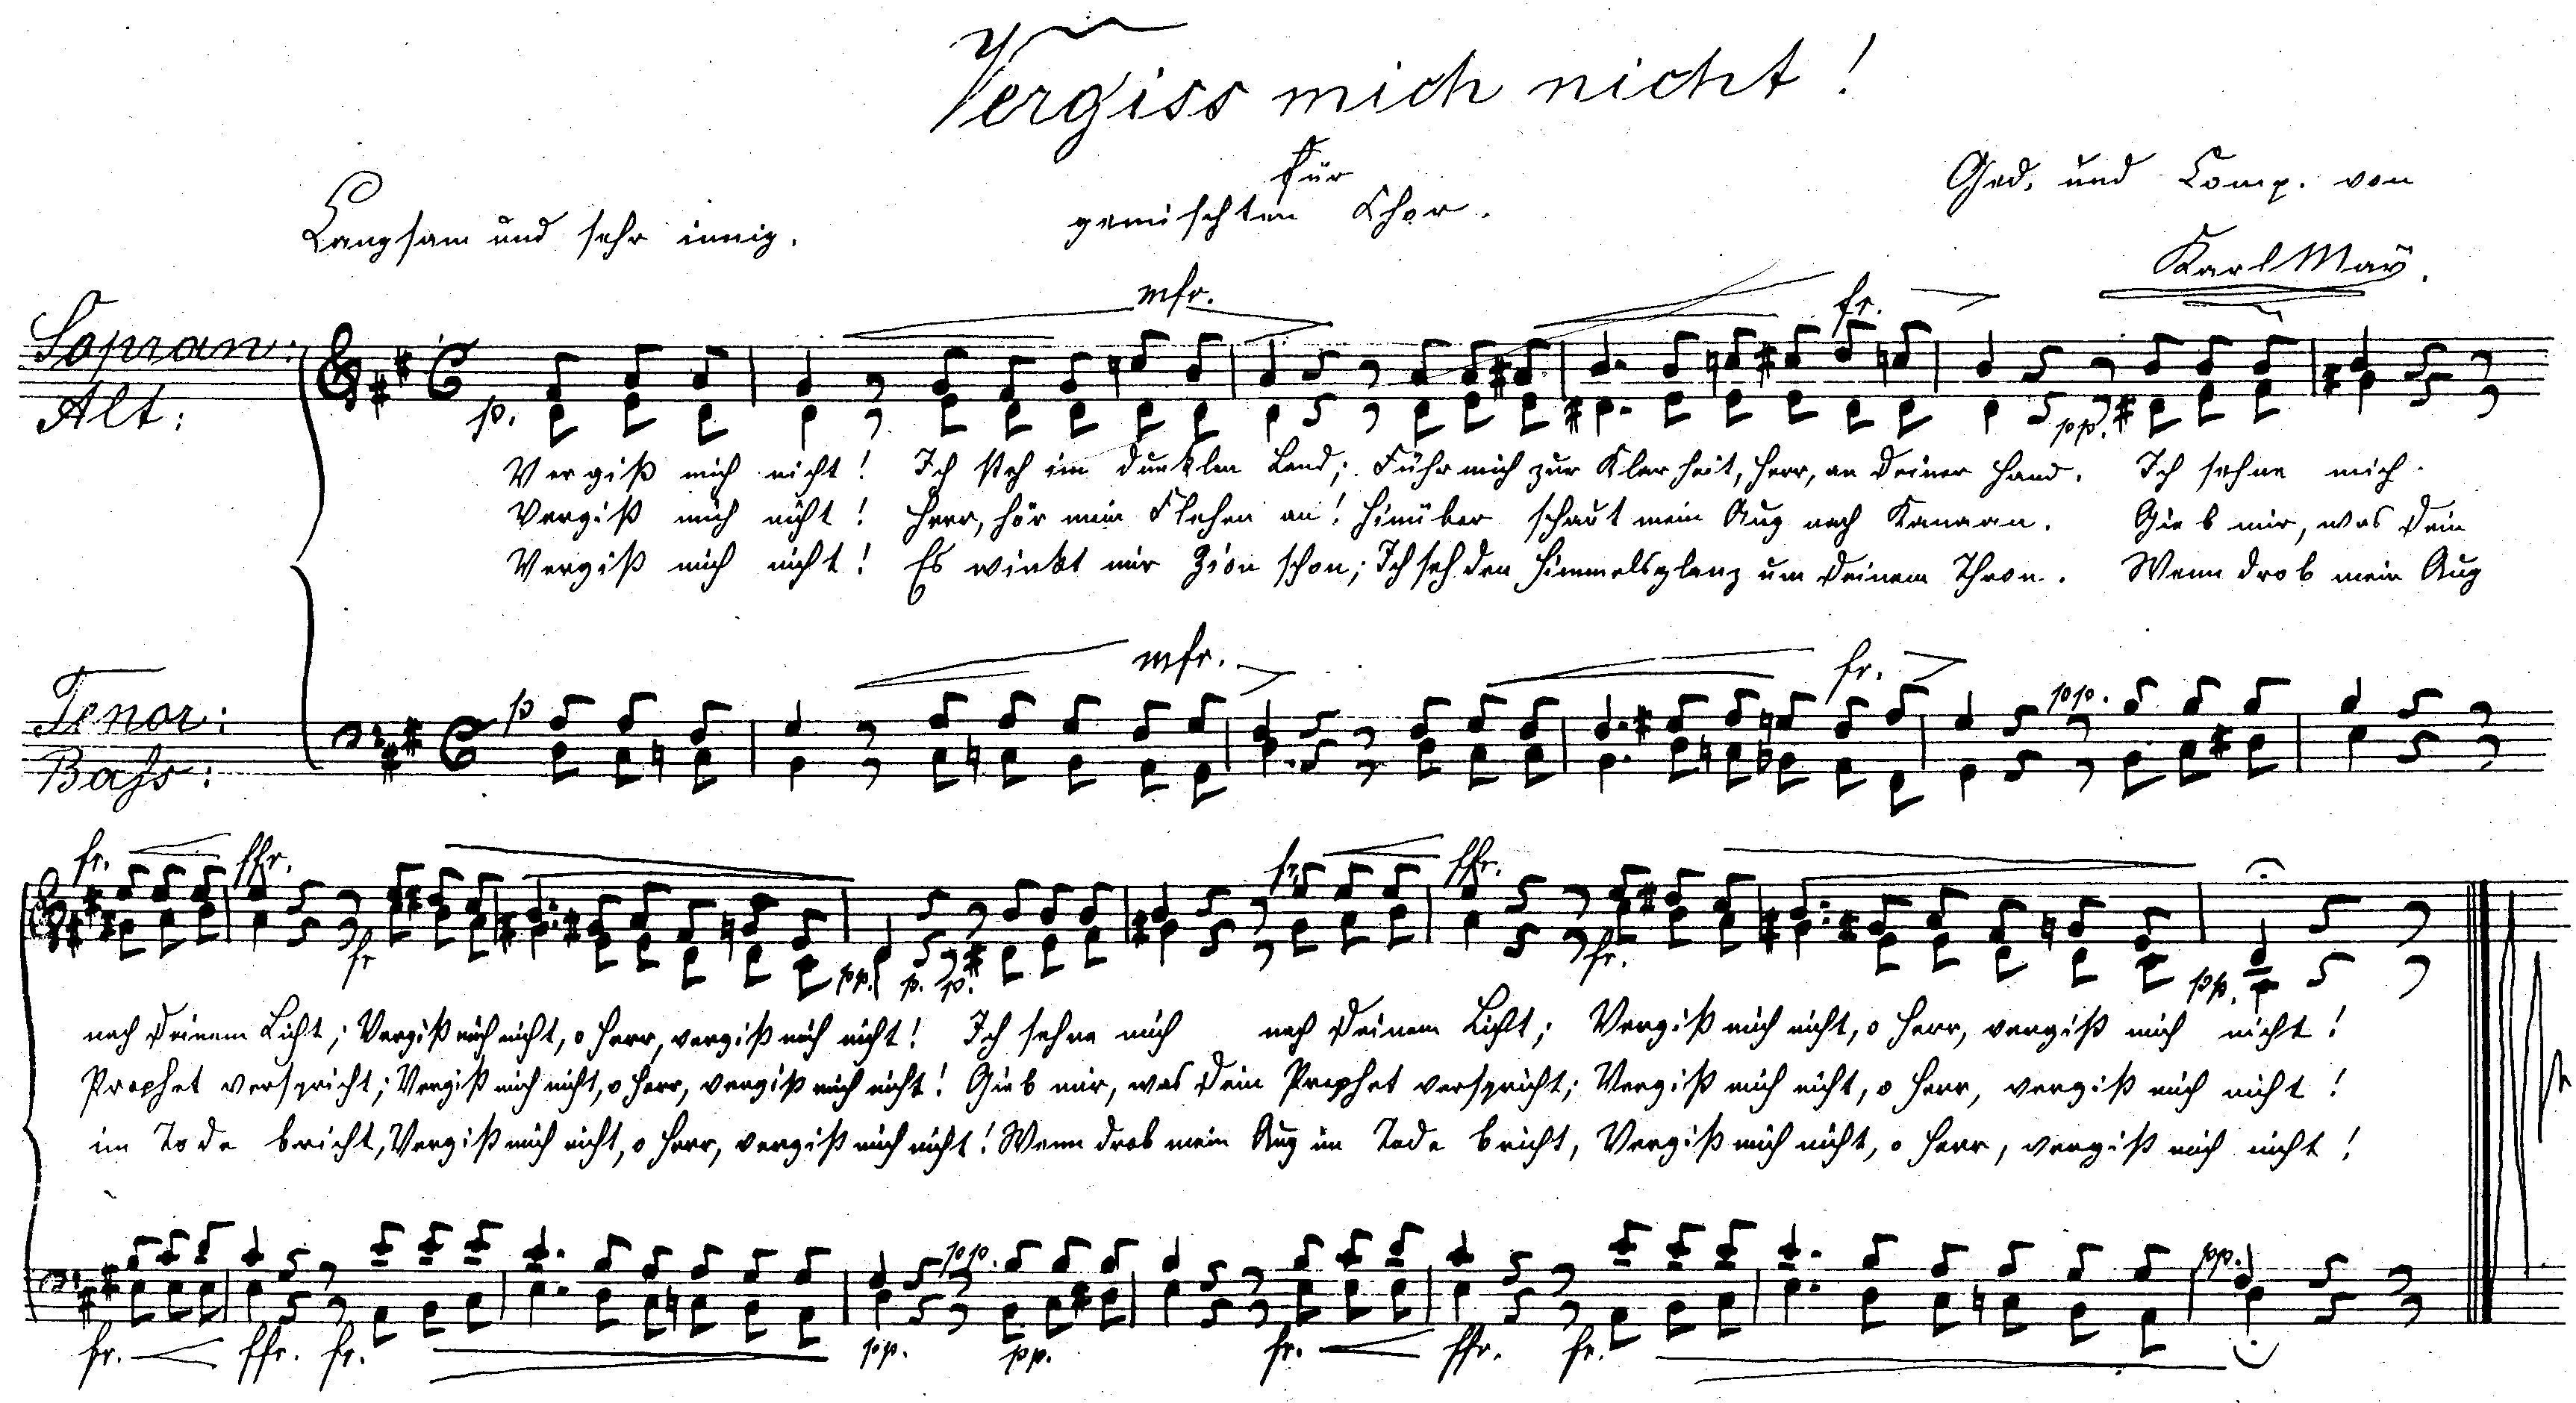 Vergiss mich nicht!
für
gemischten Chor.
Langsam und sehr innig.
Ged. und Comp. von
Karl May.
mfr.
fr.
Sopran:
Alt:
p.
pp.
Vergiß mich nicht! Ich steh im dunklen Land; Führ mich zur Klarheit, Herr, an Deiner Hand. Ich sehne mich
Vergiß mich nicht! Herr, hör mein Flehen an! Hinüber schaut mein Aug nach Kanaan. Gieb mir, was Dein
Vergiß mich nicht! Es winkt mir Zion schon; Ich seh den Himmelsglanz um Deinem Thron. Wenn drob mein Aug
mfr.
fr.
Tenor:
Bass:
p
pp.
fr. ffr. fr. ffr.
fr pp. p. p. fr. pp.
nach Deinem Licht; Vergiß mich nicht, o Herr, vergiß mich nicht! Ich sehne mich nach Deinem Licht; Vergiß mich nicht, o Herr, vergiß mich nicht!
Prophet verspricht; Vergiß mich nicht, o Herr, vergiß mich nicht! Gieb mir, was Dein Prophet verspricht; Vergiß mich nicht, o Herr, vergiß mich nicht!
im Tode bricht, Vergiß mich nicht, o Herr, vergiß mich nicht! Wenn drob mein Aug im Tode bricht, Vergiß mich nicht, o Herr, vergiß mich nicht!
pp. pp.
fr. ffr. fr. pp. pp. fr. ffr. fr.